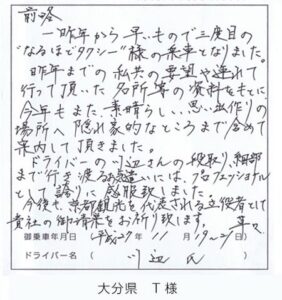 前略
一昨年から早いもので三度目の
"なるほどタクシー"様の乗車となりました。
昨年までの私共の要望や連れて
行って頂いた名所等の資料をもとに
今年もまた、素晴らしい、思い出作りの
場所へ隠れ家的なところまで含めて
案内して頂きました。
ドライバーの川辺さんの段取り、細部
まで行き渡るお気遣いには、プロフェッショナル
として誇りに感服致しました。
今後も、京都観光を代表される立役者として
貴社の御清栄をお祈り致します。
草々
御乗車年月日(平成27年11月19〜21)
ドライバー名(川辺氏)
大分県 T様